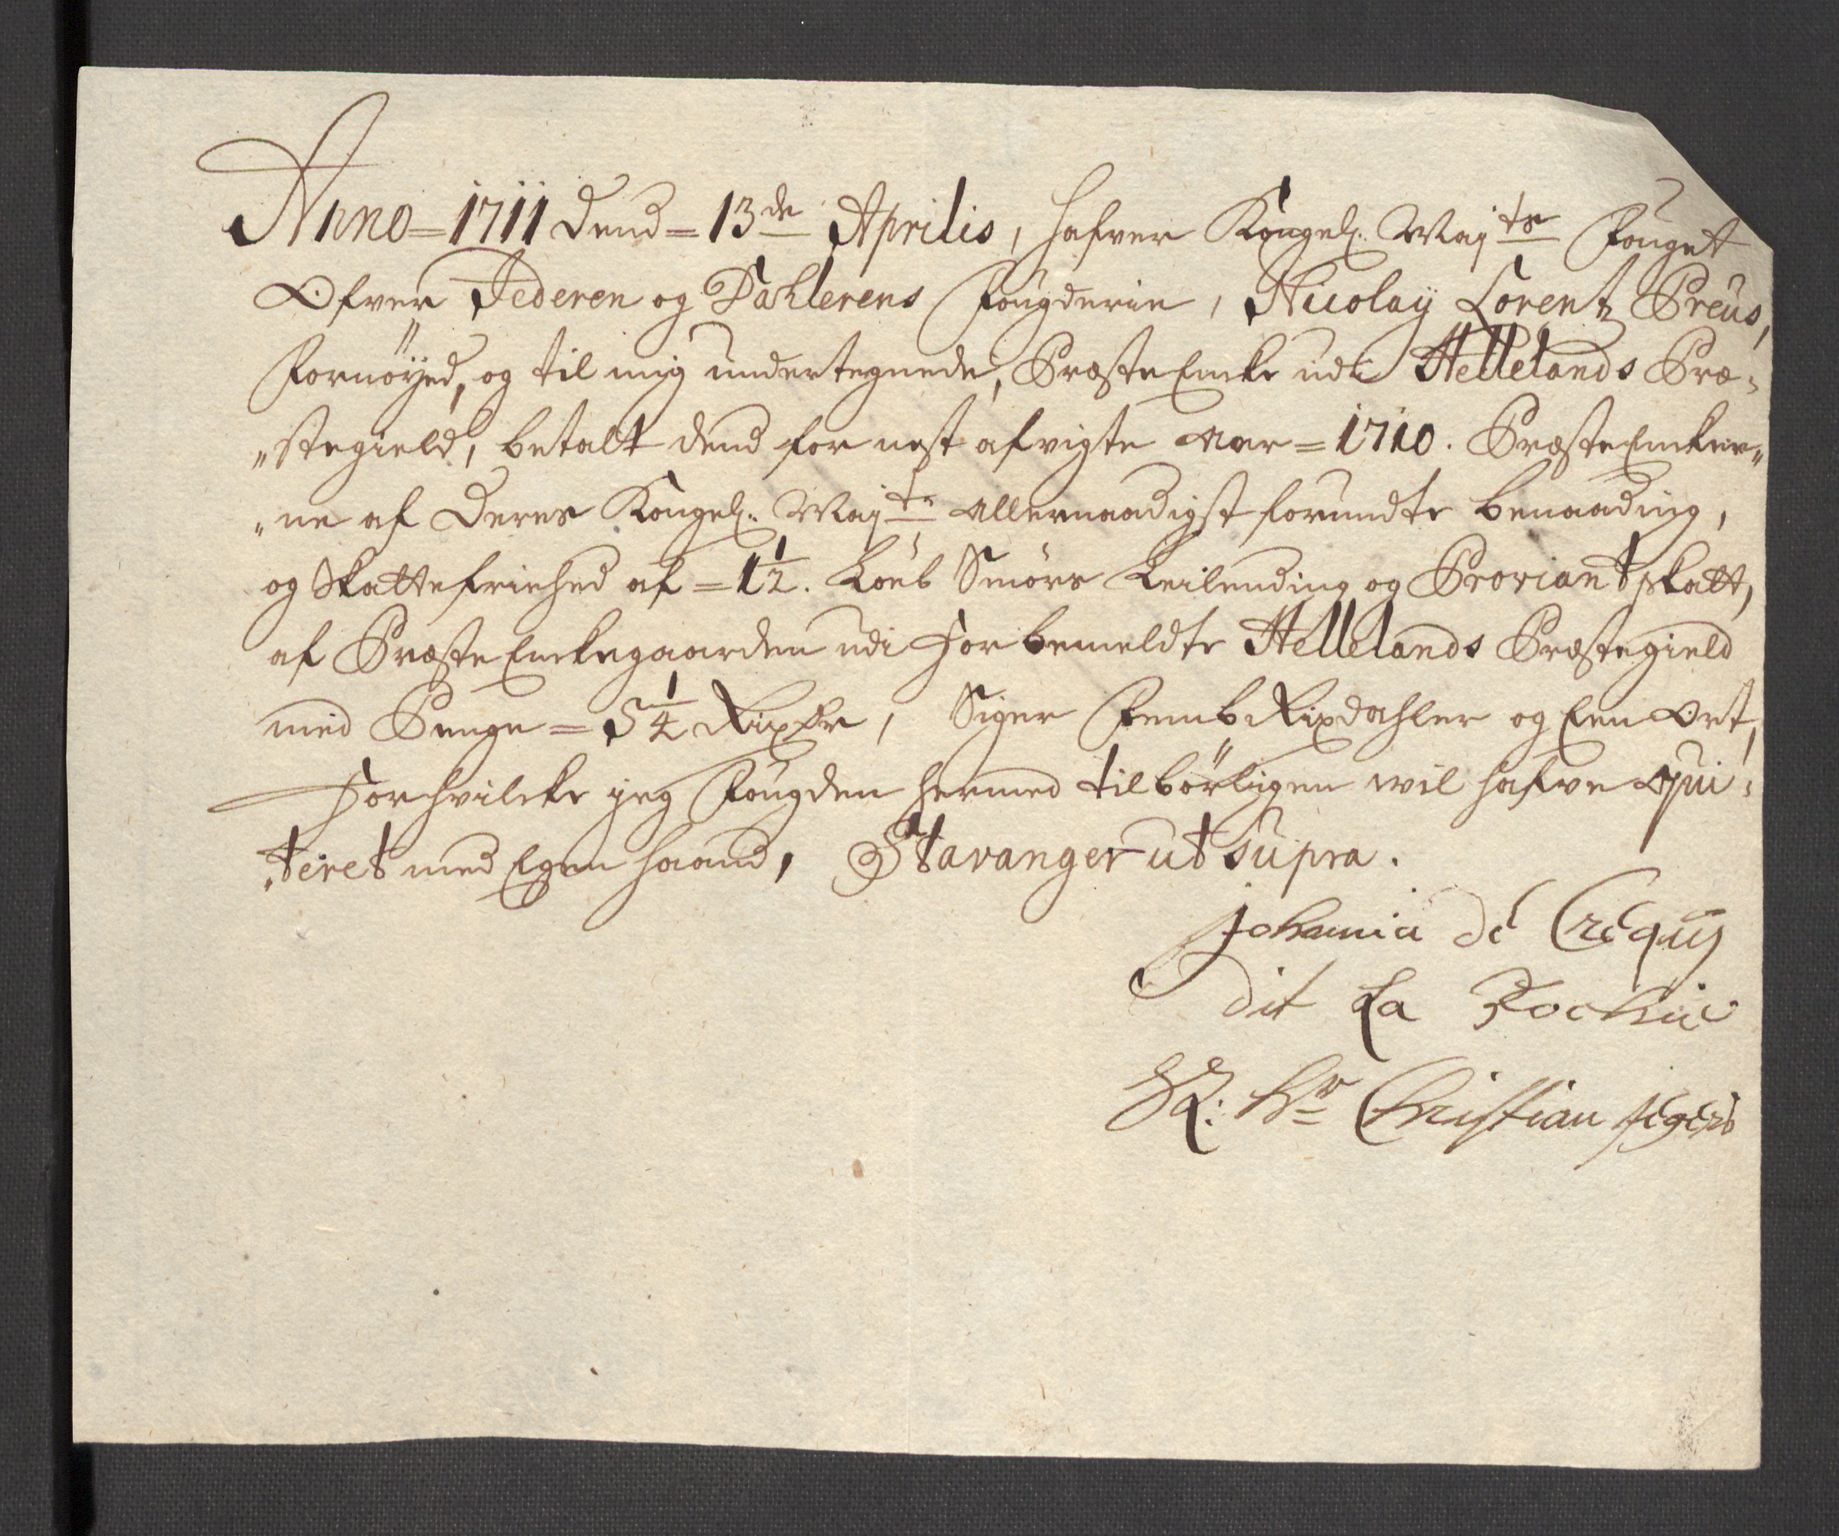 Anno = 1711 Dend = 13de Aprilis, hafver Kongel: Maj:ts Fouget
Ofver Jederen og Dahlerens Fougderie, Nicolaÿ Lorentz Preus,
Fornöÿed, og til mig undertegnede, Præste Encke udi Hellelands Præ-
"stegield, betalt dend for nest afvigte Aar = 1710. Præste Encker"
"ne af Deres Kongel: Maj:ts Allernaadigst forundte benaading,
og Skattefriehed af = 1½. Löeb Smörs Leilending og Proviant skatt,
af Præste Enckegaarden udi Forbemeldte Hellelands Præstegield
med Penge = 5¼ Rixdr, Siger Femb Rixdahler og Een Ort,
Forhvilcke jeg Fougden hermed tilbörligen wil hafve qui-
"teret med Egen haand, Stavanger ut supra.
Johannia de Crequij
dit La
Sl: Hr Christian